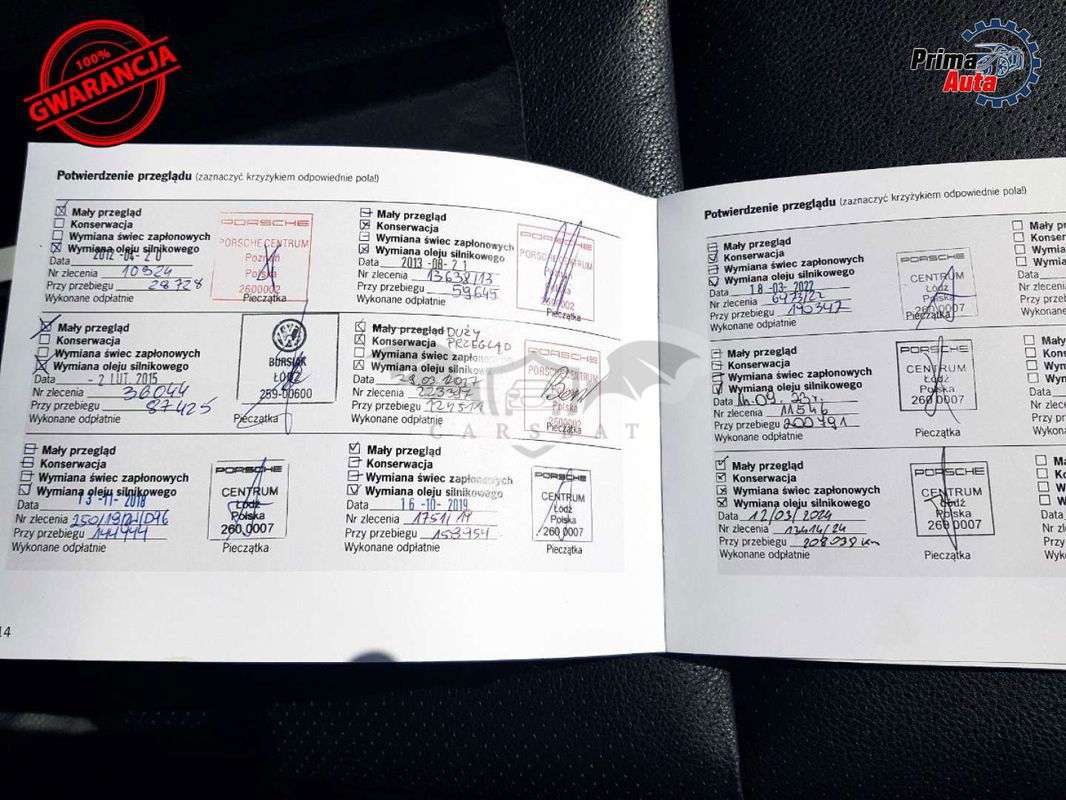 100%
GWARANCJA
Prima
Auta
Potwierdzenie przeglądu (zaznaczyć krzyżykiem odpowiednie pola!)
Mały przegląd
Konserwacja
Wymiana świec zapłonowych
Wymiana oleju silnikowego
Data 2012-04-20
Nr zlecenia 10924
Przy przebiegu 28728
Wykonane odpłatnie
PORSCHE
PORSCHE CENTRUM
Poznań
Polska
2600002
Pieczątka
Mały przegląd
Konserwacja
Wymiana świec zapłonowych
Wymiana oleju silnikowego
Data 2013-08-21
Nr zlecenia 13638/13
Przy przebiegu 59645
Wykonane odpłatnie
PORSCHE
PORSCHE CENTRUM
Polska
2600002
Pieczątka
Mały przegląd
Konserwacja
Wymiana świec zapłonowych
Wymiana oleju silnikowego
Data - 2 LUT. 2015
Nr zlecenia 36044
Przy przebiegu 87425
Wykonane odpłatnie
BURSIAK
ŁÓDŹ
289-00600
Pieczątka
Mały przegląd DUŻY
Konserwacja PRZEGLĄD
Wymiana świec zapłonowych
Wymiana oleju silnikowego
Data 29.03.2017
Nr zlecenia 223387
Przy przebiegu 124511
Wykonane odpłatnie
PORSCHE
PORSCHE CENTRUM
Polska
2600002
Pieczątka
CARSBAT
Mały przegląd
Konserwacja
Wymiana świec zapłonowych
Wymiana oleju silnikowego
Data 13-11-2018
Nr zlecenia
Przy przebiegu 144999
Wykonane odpłatnie
PORSCHE
CENTRUM
Łódź
Polska
260 0007
Pieczątka
Mały przegląd
Konserwacja
Wymiana świec zapłonowych
Wymiana oleju silnikowego
Data 16-10-2019
Nr zlecenia 1751/19
Przy przebiegu 153954
Wykonane odpłatnie
PORSCHE
CENTRUM
Łódź
Polska
260 0007
Pieczątka
14
Potwierdzenie przeglądu (zaznaczyć krzyżykiem odpowiednie pola!)
Mały przegląd
Konserwacja
Wymiana świec zapłonowych
Wymiana oleju silnikowego
Data 18-03-2022
Nr zlecenia 6973/22
Przy przebiegu 190347
Wykonane odpłatnie
PORSCHE
CENTRUM
Łódź
Polska
260 0007
Pieczątka
Mały przegląd
Konserwacja
Wymiana świec zapłonowych
Wymiana oleju silnikowego
Data 14.09.23r.
Nr zlecenia 11546
Przy przebiegu 200791
Wykonane odpłatnie
PORSCHE
CENTRUM
Łódź
Polska
260 0007
Pieczątka
Mały przegląd
Konserwacja
Wymiana świec zapłonowych
Wymiana oleju silnikowego
Data 12/03/2024
Nr zlecenia 13414/24
Przy przebiegu 208038 km
Wykonane odpłatnie
PORSCHE
CENTRUM
Łódź
Polska
260 0007
Pieczątka